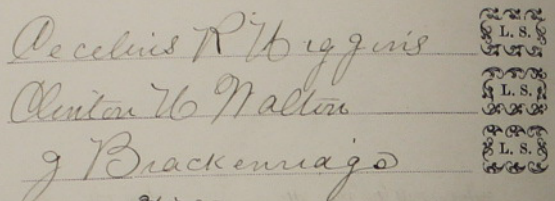 Cecelius R Higgins L. S.
Clinton H Walton L. S.
J Brackenriago L. S.